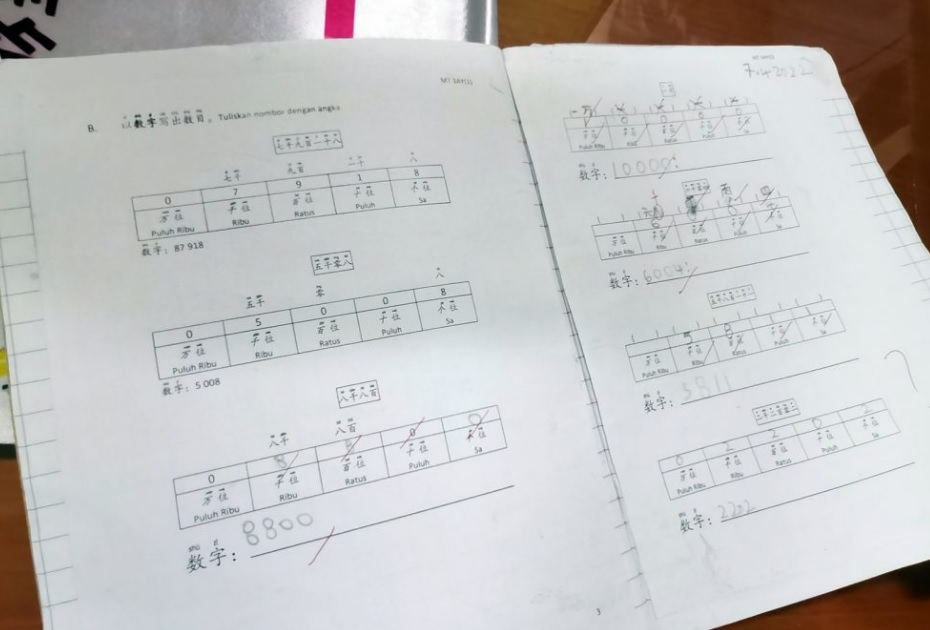 MT SAY(S)
B. 以数字写出数目。Tuliskan nombor dengan angka
七千九百一十八
七千 九百 一十 八
0 7 9 1 8
万位 千位 百位 十位 个位
Puluh Ribu Ribu Ratus Puluh Sa
数字：87 918
五千零八
五千 零 八
0 5 0 0 8
万位 千位 百位 十位 个位
Puluh Ribu Ribu Ratus Puluh Sa
数字：5 008
八千八百
八千 八百
0 8 8 0 0
万位 千位 百位 十位 个位
Puluh Ribu Ribu Ratus Puluh Sa
shù zì
数字：8800
7.4.2022
一万
0 0 0 0
万位 千位 百位 十位 个位
Puluh Ribu Ribu Ratus Puluh Sa
数字：10000
万位 千位 百位 十位 个位
Puluh Ribu Ribu Ratus Puluh Sa
数字：6004
五千八百一十一
5 8
万位 千位 百位 十位 个位
Puluh Ribu Ribu Ratus Puluh Sa
数字：5811
二千二百零二
0 2 2 0 2
万位 千位 百位 十位 个位
Puluh Ribu Ribu Ratus Puluh Sa
数字：2202
3